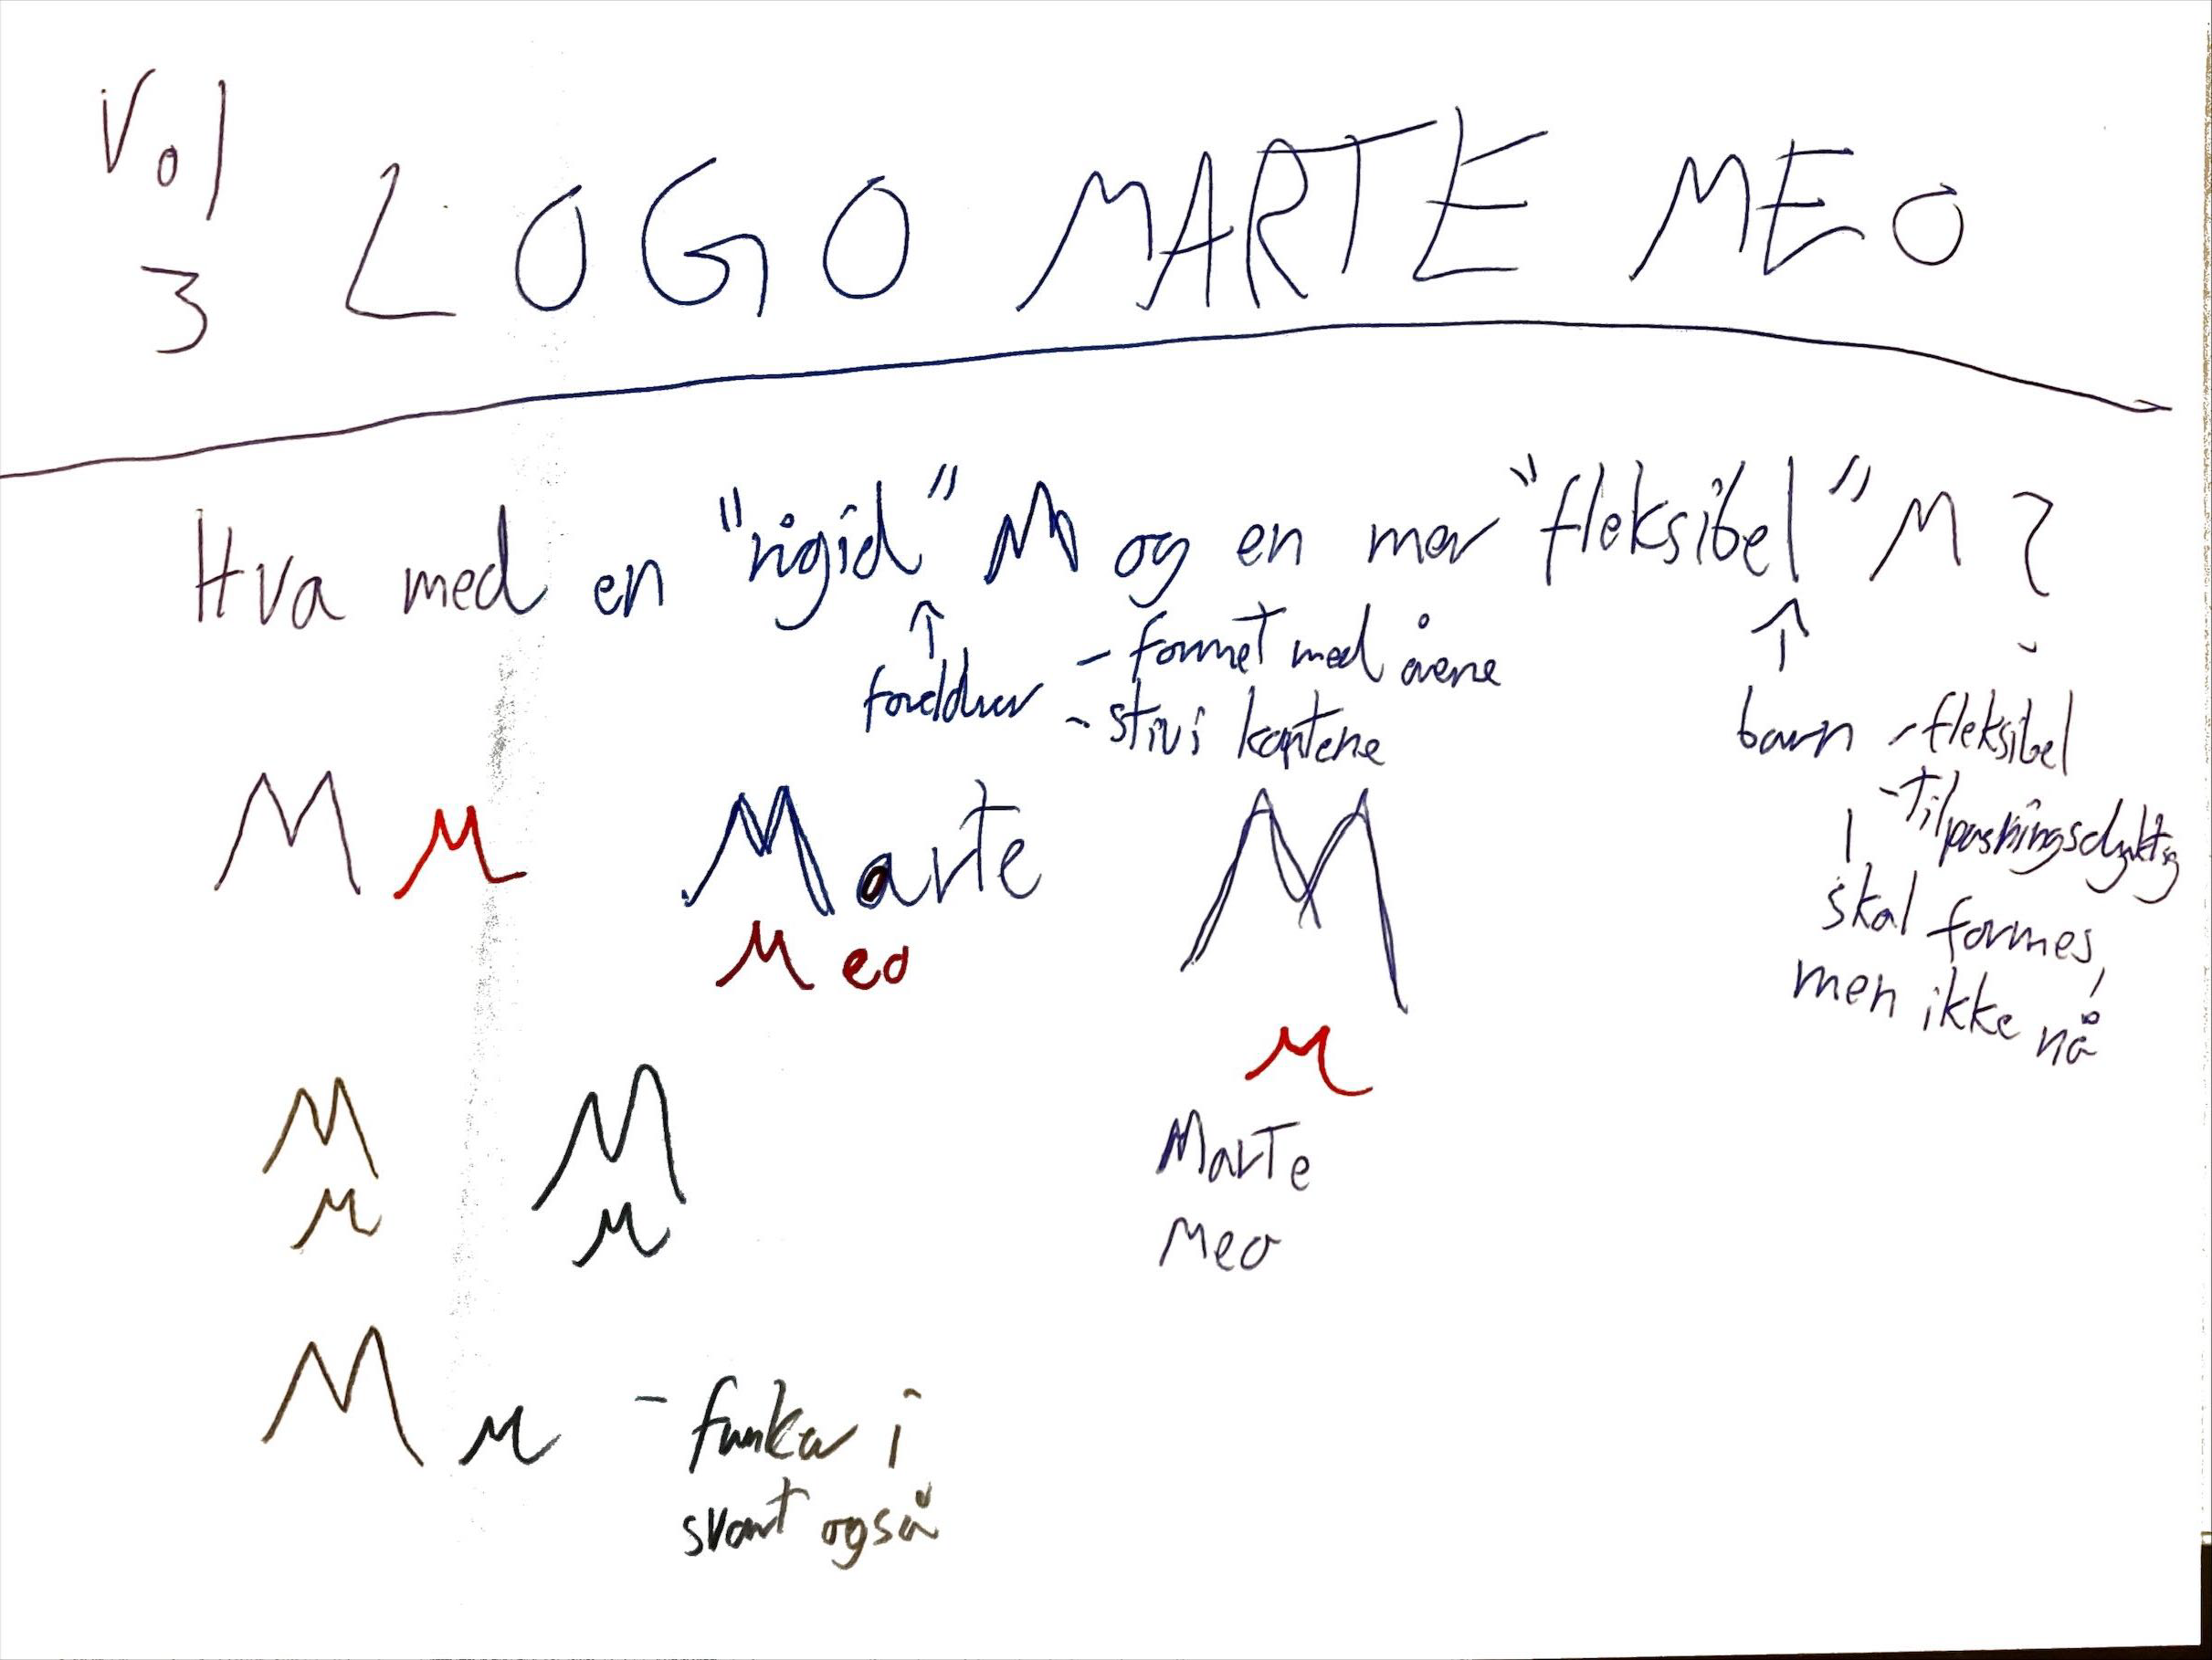 Vol
3
LOGO MARTE MEO
Hva med en "rigid" M og en mer "fleksibel" M ?
↑
foreldrer - formet med årene
- stiv i kantene
↑
barn - fleksibel
- Tilpasningsdyktig
skal formes,
men ikke nå
M M
Marte
Meo
M
M
Marte
Meo
M
M
M
M
M M - funker i
svart også